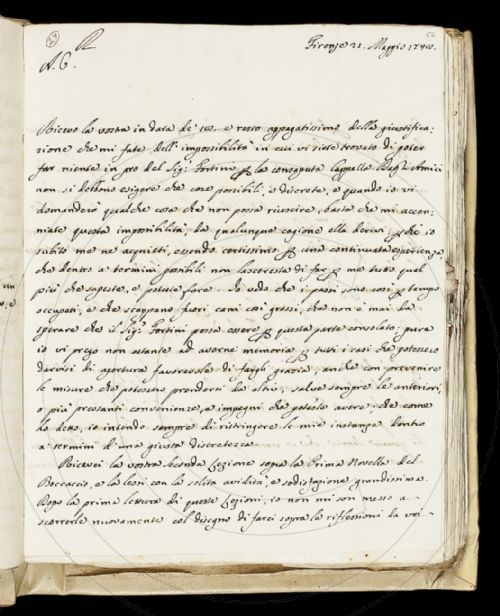 27
56
A. C.
Firenze 21. Maggio 174
Ricevo la vostra in data de' 18. e resto appagatissimo della giustifica-
zione che mi fate dell'impossibilità in cui vi siete trovato di poter
far niente in pro del Sig: Fortini p la consaputa Cappella Dagl'Amici
non si debbono esigere che cose possibili, e discrete, e quando io vi
domanderò qualche cosa che non possa riuscire, basta che mi accen-
niate questa impossibilità, da qualunque cagione ella derivi, pchè io
subito me ne acquieti, essendo certissimo p una continuata esperienza
che dentro a termini possibili non lascereste di far p me tutto quel
più che sapeste, e poteste fare. Io vedo che i passi sono così p tempo
occupati, e che scappano fuori cani così grossi, che non è mai da
sperare che il Sig: Fortini possa essere p questa parte consolato: pure
io vi prego non ostante ad averne memoria p tutti i casi che potessero
darvisi di apertura favorevole di fargli grazia, anche con prevenire
le misure che potessero prendersi da altri, salve sempre le anteriori,
o più pressanti convenienze, e impegni che poteste avere; che come
ho detto, io intendo sempre di ristringere le mie instanze dentro
a termini d'una giusta discretezza.
Ricevei la vostra seconda Lezione sopra la Prima Novella del
Boccaccio, e la lessi con la solita avidità, e sodisfazione grandissima.
Dopo la prima lettura di queste Lezioni, io non mi son messo a
scorrerle nuovamente col disegno di farci sopra le riflessioni da voi